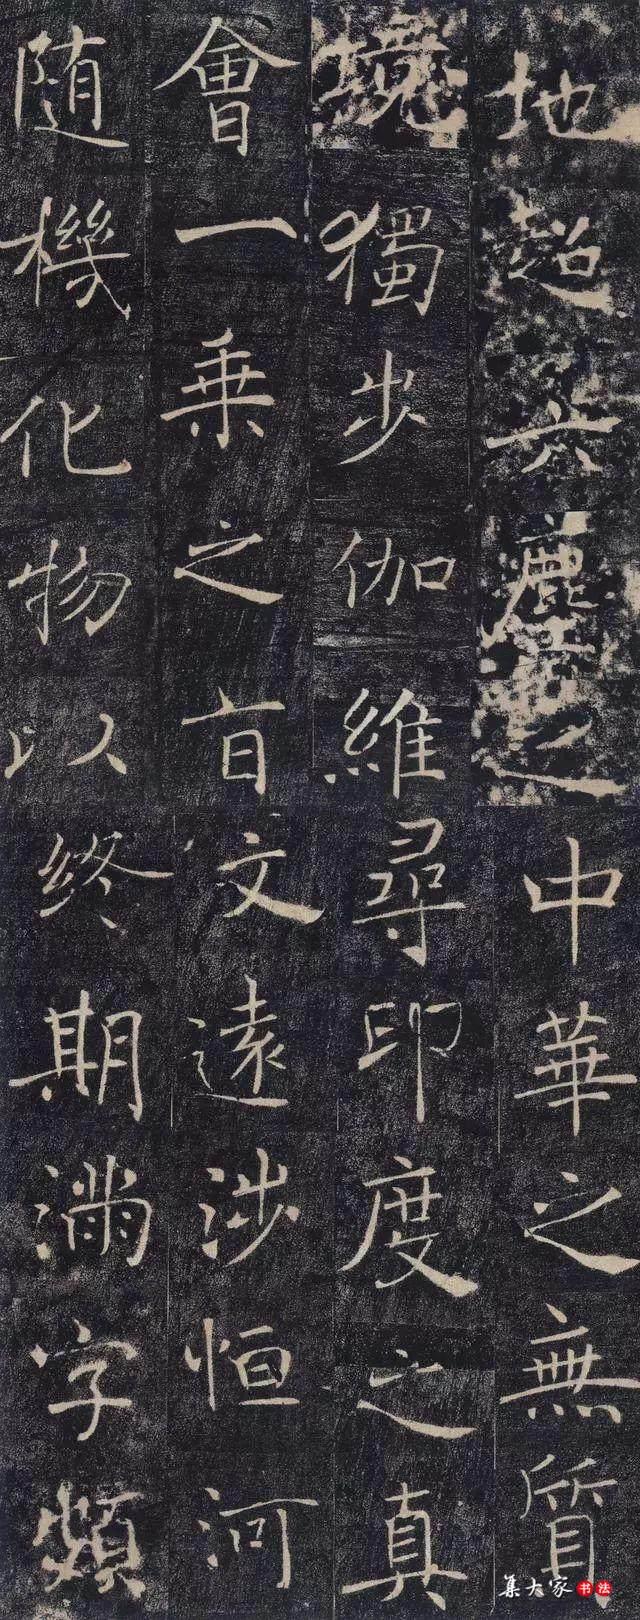 地超六塵之中華之無質
境獨步伽維尋印度之真
會一乗之旨文遠涉恒河
随機化物以終期滿字頻
集大家书法